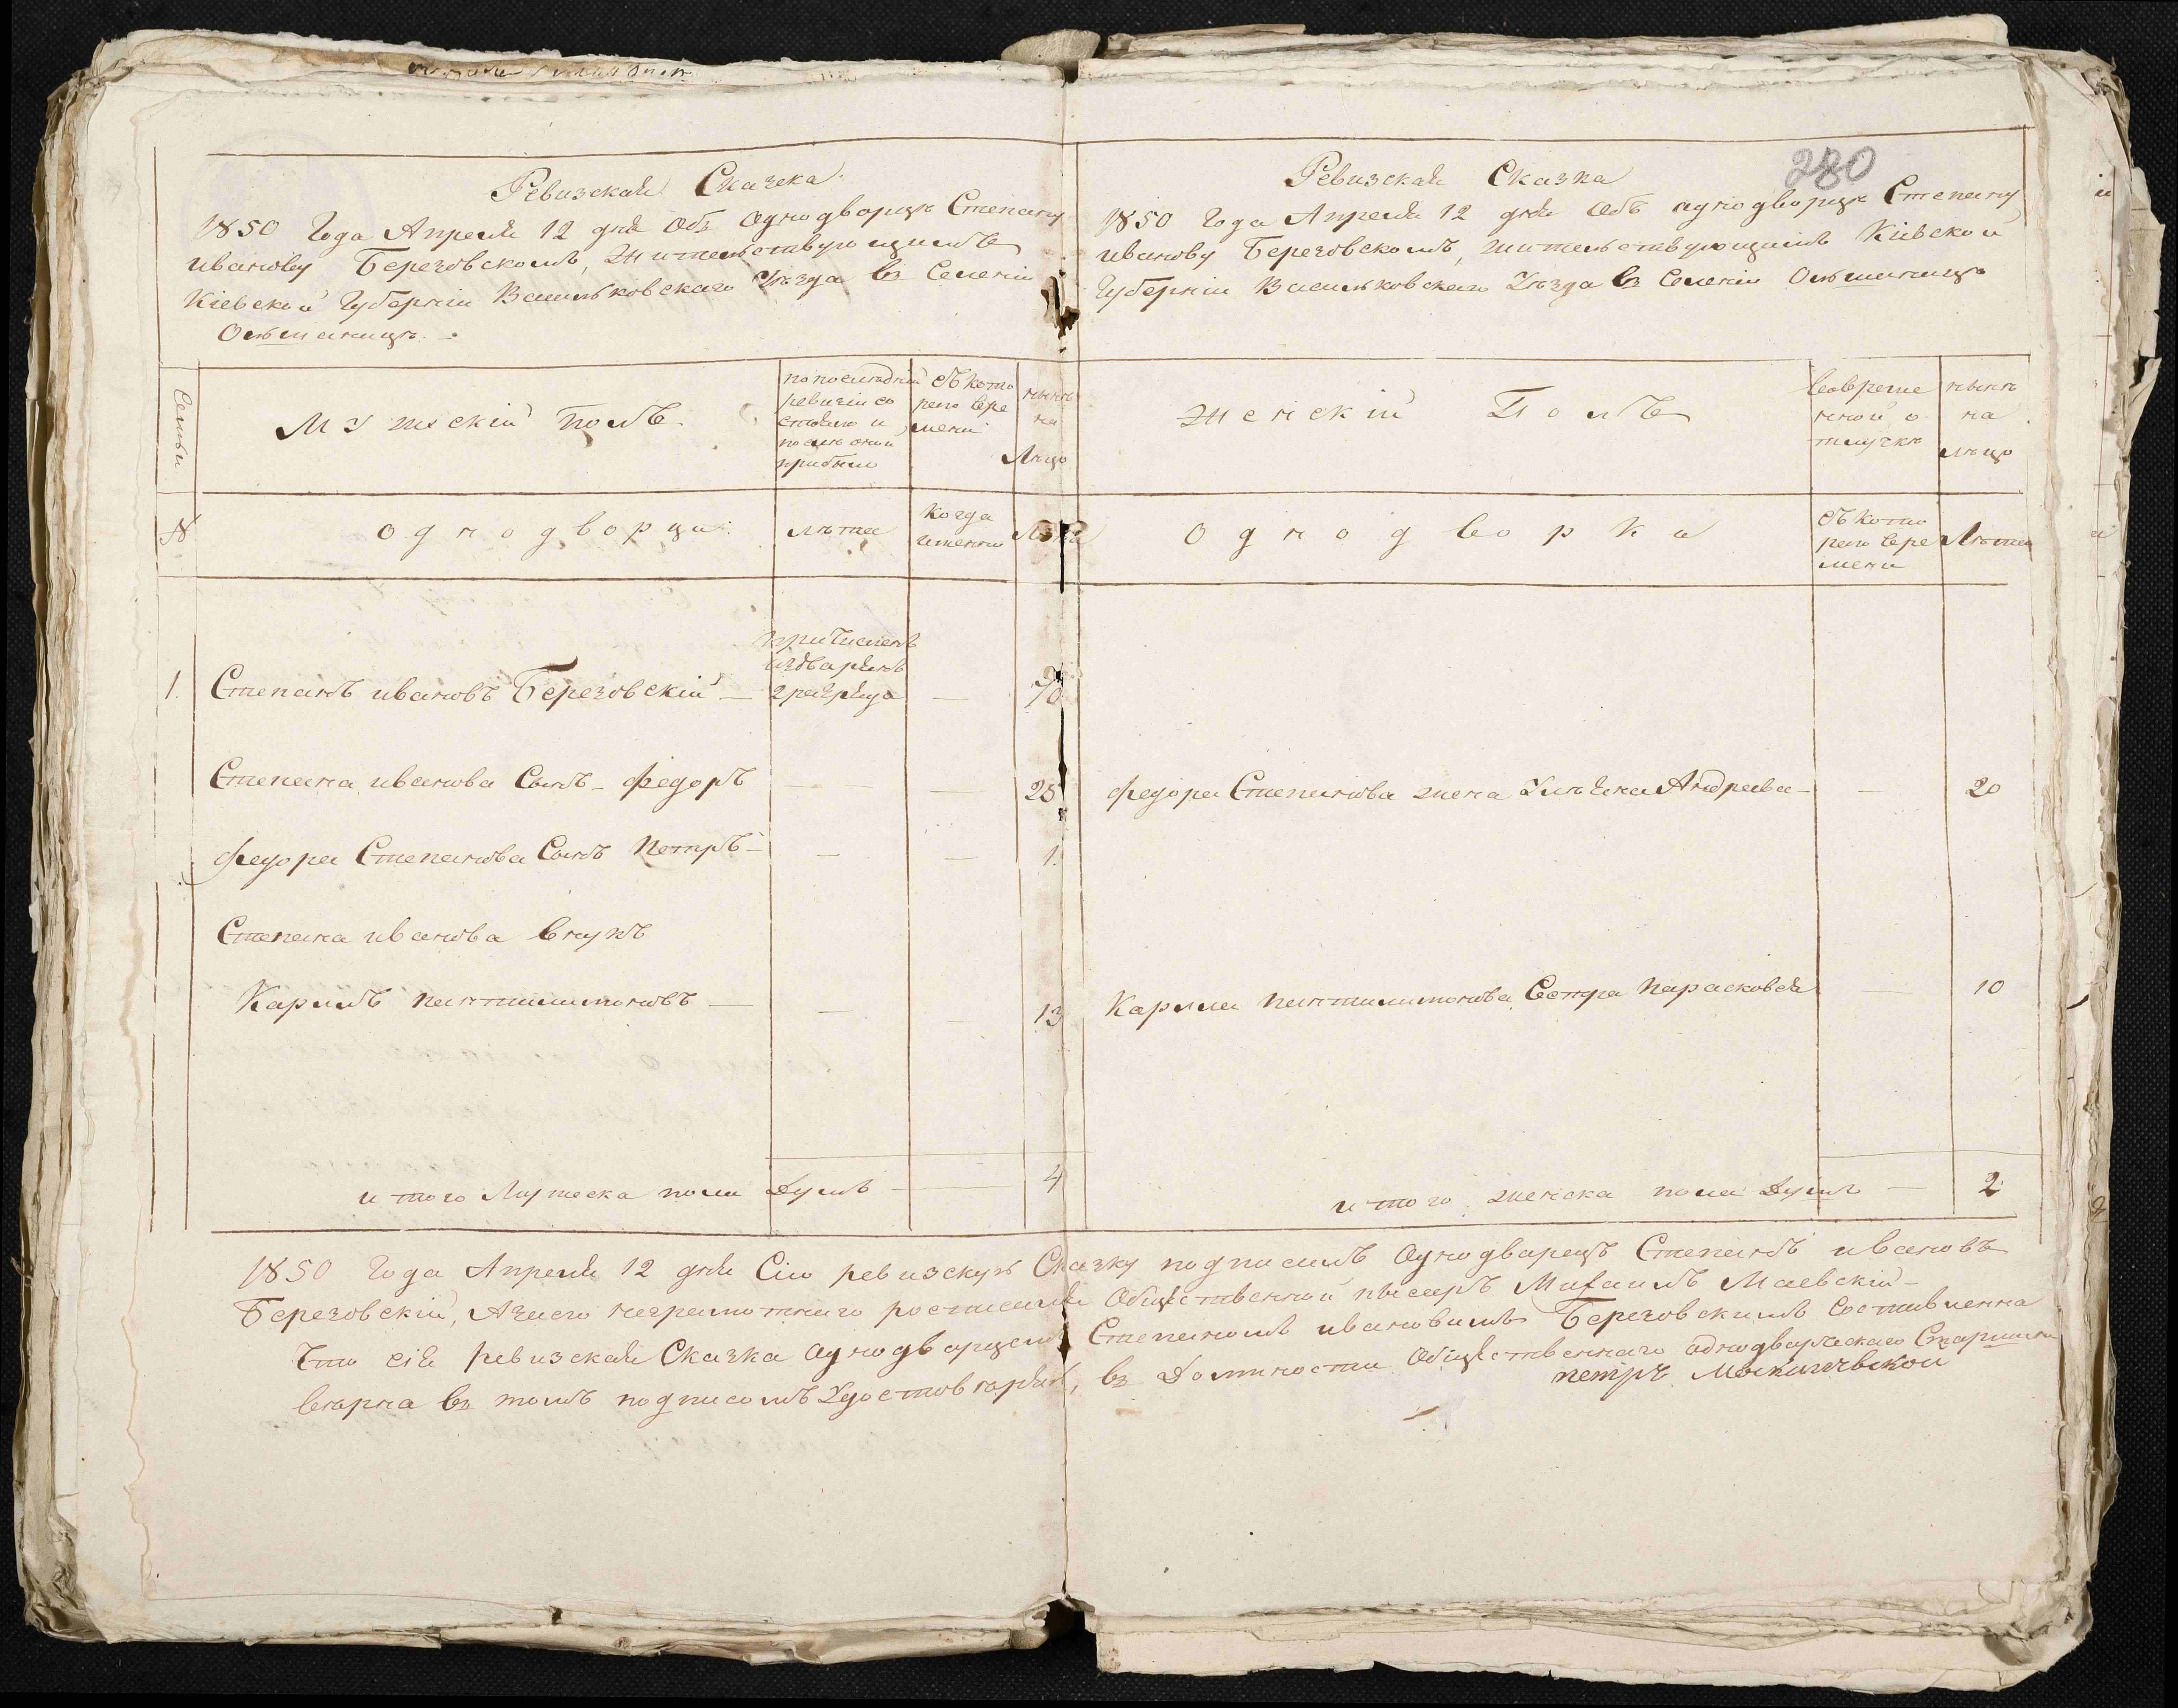 280
Ревизская Сказка
1850 Года Апреля 12 дня Объ Однодворцѣ Степану
иванову Березовскомъ, Жительствующимъ
Кіевской Губерніи Васильковскаго Уѣзда въ Селеніи
Ольшаницѣ.
Семьи
Мужескій Полъ
по последней
ревизіи со
стояло и
после оной
прибыло
съ кото
раго вре
мени
нынѣ
на
Лицо
№
Однодворцы
лѣта
Когда
именно
Лѣта
причисленъ
издворянъ
2 разряда
1. Степанъ ивановъ Березовскій — — 70
Степана иванова Сынъ - Федоръ — — 25
Федора Степанова Сынъ Петръ — — 1.
Степана иванова внукъ
Карпъ пантилимоновъ — — — 13
итого Мужеска пола Душъ — 4
Ревизская Сказка
1850 Года Апреля 12 дня Объ однодворцѣ Степану
иванову Березовскомъ, жительствующимъ Кіевской
Губерніи Васильковскаго Уѣзда въ Селеніи Ольшаницѣ
Женскій Полъ
вовреме
нной о
тлучкѣ
нынѣ
на
лицо
Однодворки
съ кото
раго вре
мени
Лѣта
Федора Степанова жена Андреева — — 20
Карпа пантилимонова Сестра Парасковея — 10
итого женска пола Душъ — 2
1850 Года Апреля 12 дня Сію ревизскую Сказку подписалъ Однодворецъ Степанъ ивановъ
Березовскій, Азанего неграмотнаго росписался Общественной писарь Михаилъ Маевскій -
Что сія ревизская Сказка Однодворцемъ Степаномъ ивановымъ Березовскимъ Составленна
верна въ томъ подписомъ Удостоверяю, въ Должности Общественнаго однодворческаго Старшины
петръ